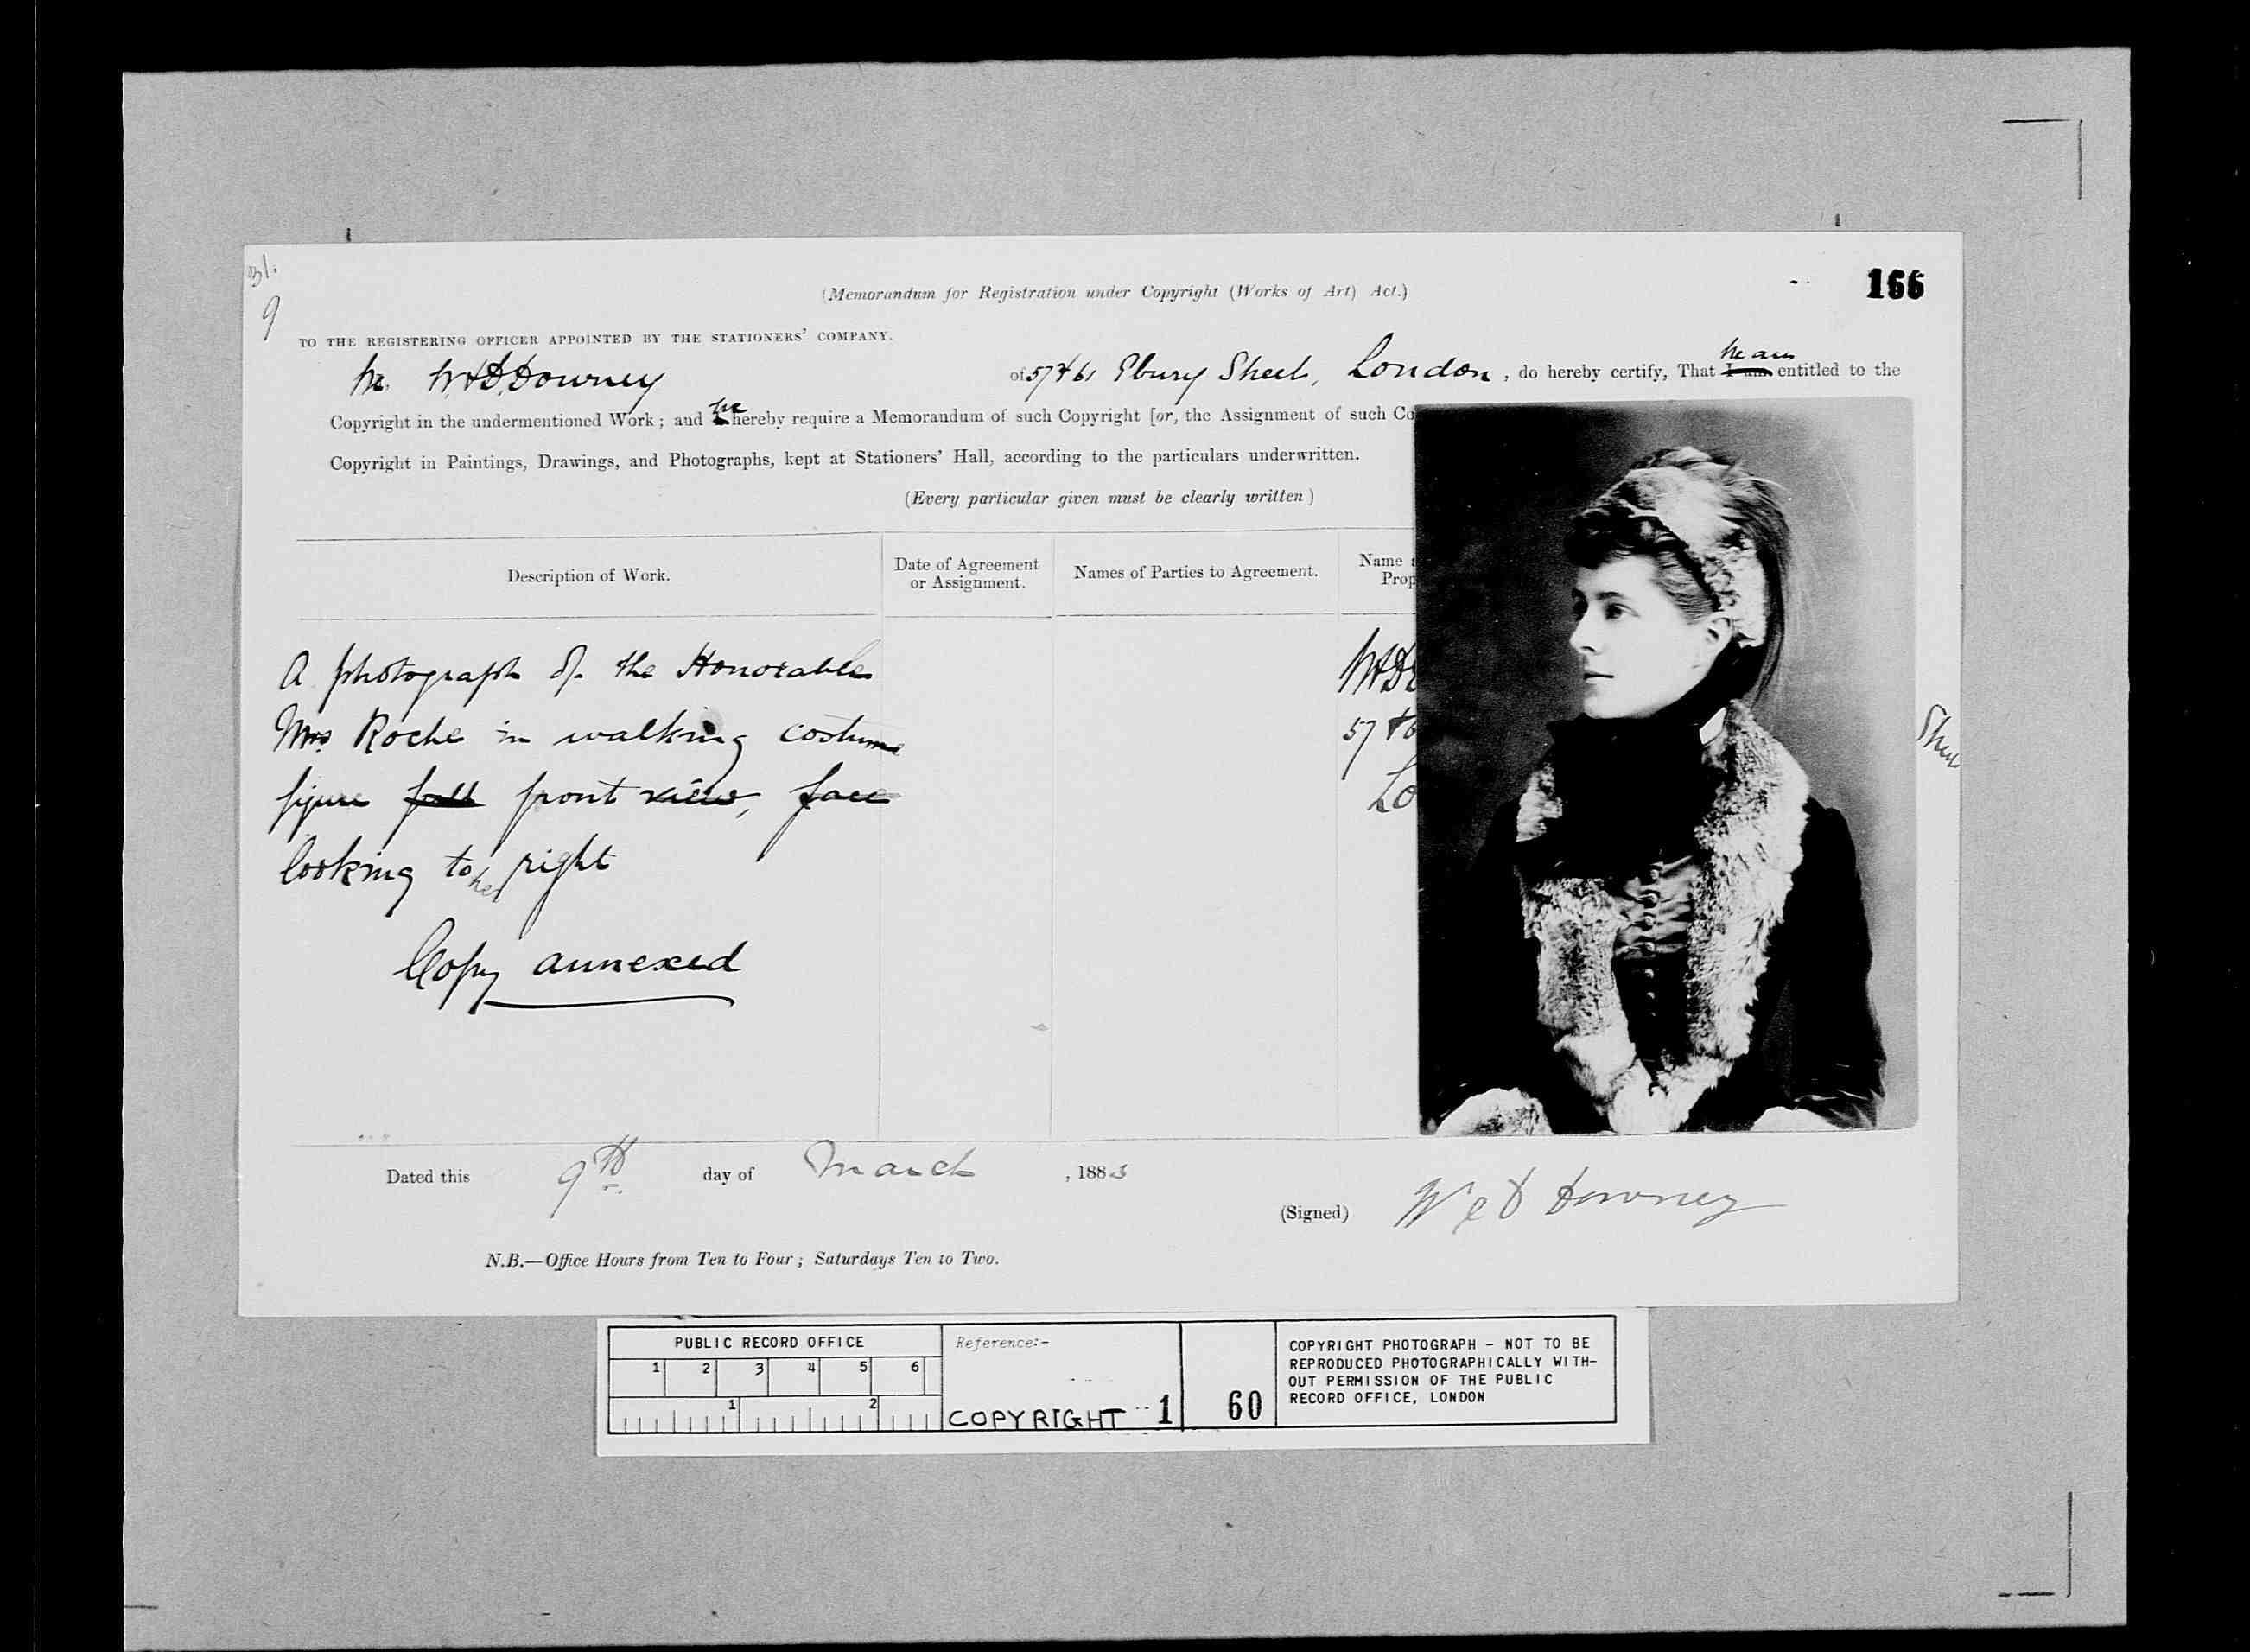 31.
9
166
(Memorandum for Registration under Copyright (Works of Art) Act.)
TO THE REGISTERING OFFICER APPOINTED BY THE STATIONERS' COMPANY.
We W&D Downey of 57 & 61 Ebury Street, London, do hereby certify, That I am we are entitled to the
Copyright in the undermentioned Work; and we hereby require a Memorandum of such Copyright [or, the Assignment of such Co
Copyright in Paintings, Drawings, and Photographs, kept at Stationers' Hall, according to the particulars underwritten.
(Every particular given must be clearly written)
Description of Work.
Date of Agreement
or Assignment.
Names of Parties to Agreement.
Name
Prop
A photograph of the Honorable
Mrs Roche in walking costume
figure full front view, face
looking to her right
Copy annexed
W&D
57 & 6
Lo
Stree
Dated this 9th day of March, 1883
(Signed) W & D Downey
N.B.—Office Hours from Ten to Four; Saturdays Ten to Two.
PUBLIC RECORD OFFICE
1 2 3 4 5 6
1 2
Reference:-
COPYRIGHT 1 60
COPYRIGHT PHOTOGRAPH - NOT TO BE
REPRODUCED PHOTOGRAPHICALLY WITH-
OUT PERMISSION OF THE PUBLIC
RECORD OFFICE, LONDON